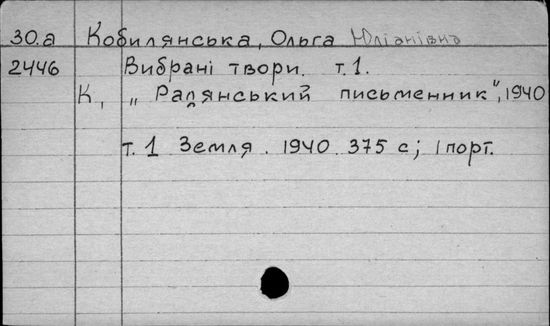 30.а Кобилянська, Ольга Юліанівна
2446 Вибрані твори. т.1.
К, „Радянський письменник", 1940
т.1 Земля. 1940 375 с; 1 порт.